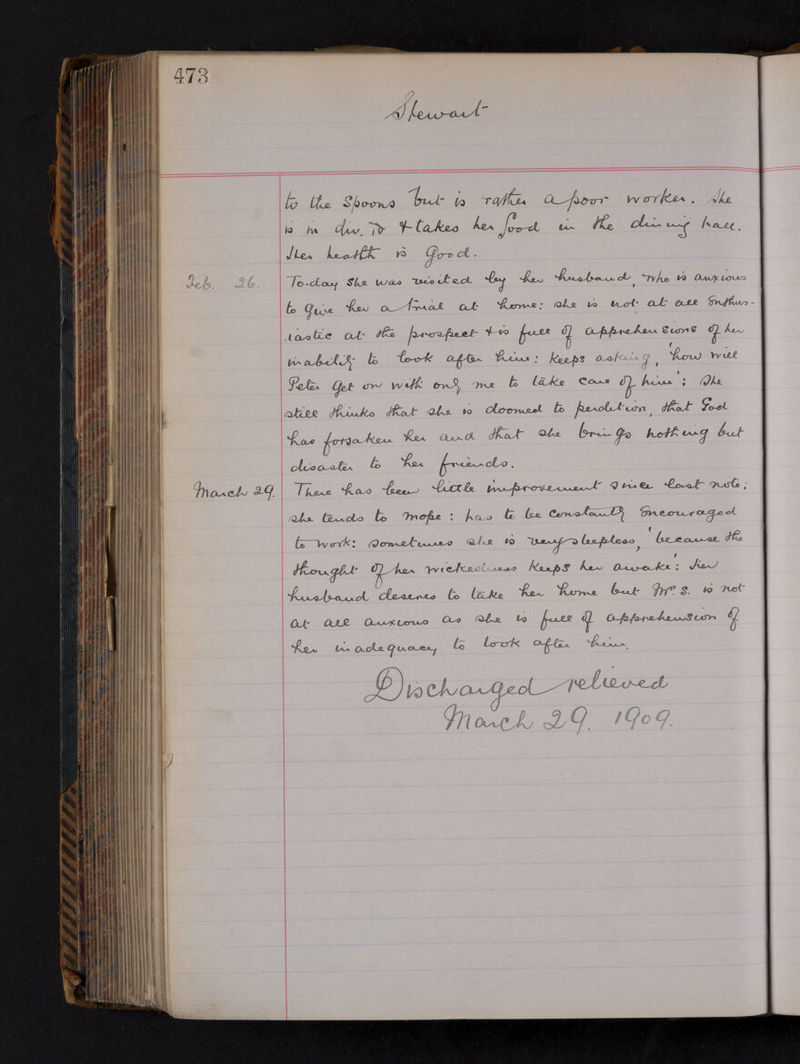 473
Stewart
to the Spoons but is rather a poor worker. She
is in div. IV & takes her food in the dining hall.
Her health is good.
Feb. 26. To-day she was visited by her husband, who is anxious
to give her a trial at home: she is not at all enthus-
iastic at the prospect & is full of apprehensions of her
inability to look after him: keeps asking, 'how will
Peter get on with only me to take care of him': She
still thinks that she is doomed to perdition, that God
has forsaken her and that she brings nothing but
disaster to her friends.
March 29. There has been little improvement since last note;
she tends to mope: has to be constantly encouraged
to work: sometimes she is very sleepless, 'because the
thought of her wickedness keeps her awake': Her
husband desires to take her home but Mrs. S. is not
at all anxious as she is full of apprehension of
her inadequacy to look after him.
Discharged relieved
March 29. 1909.